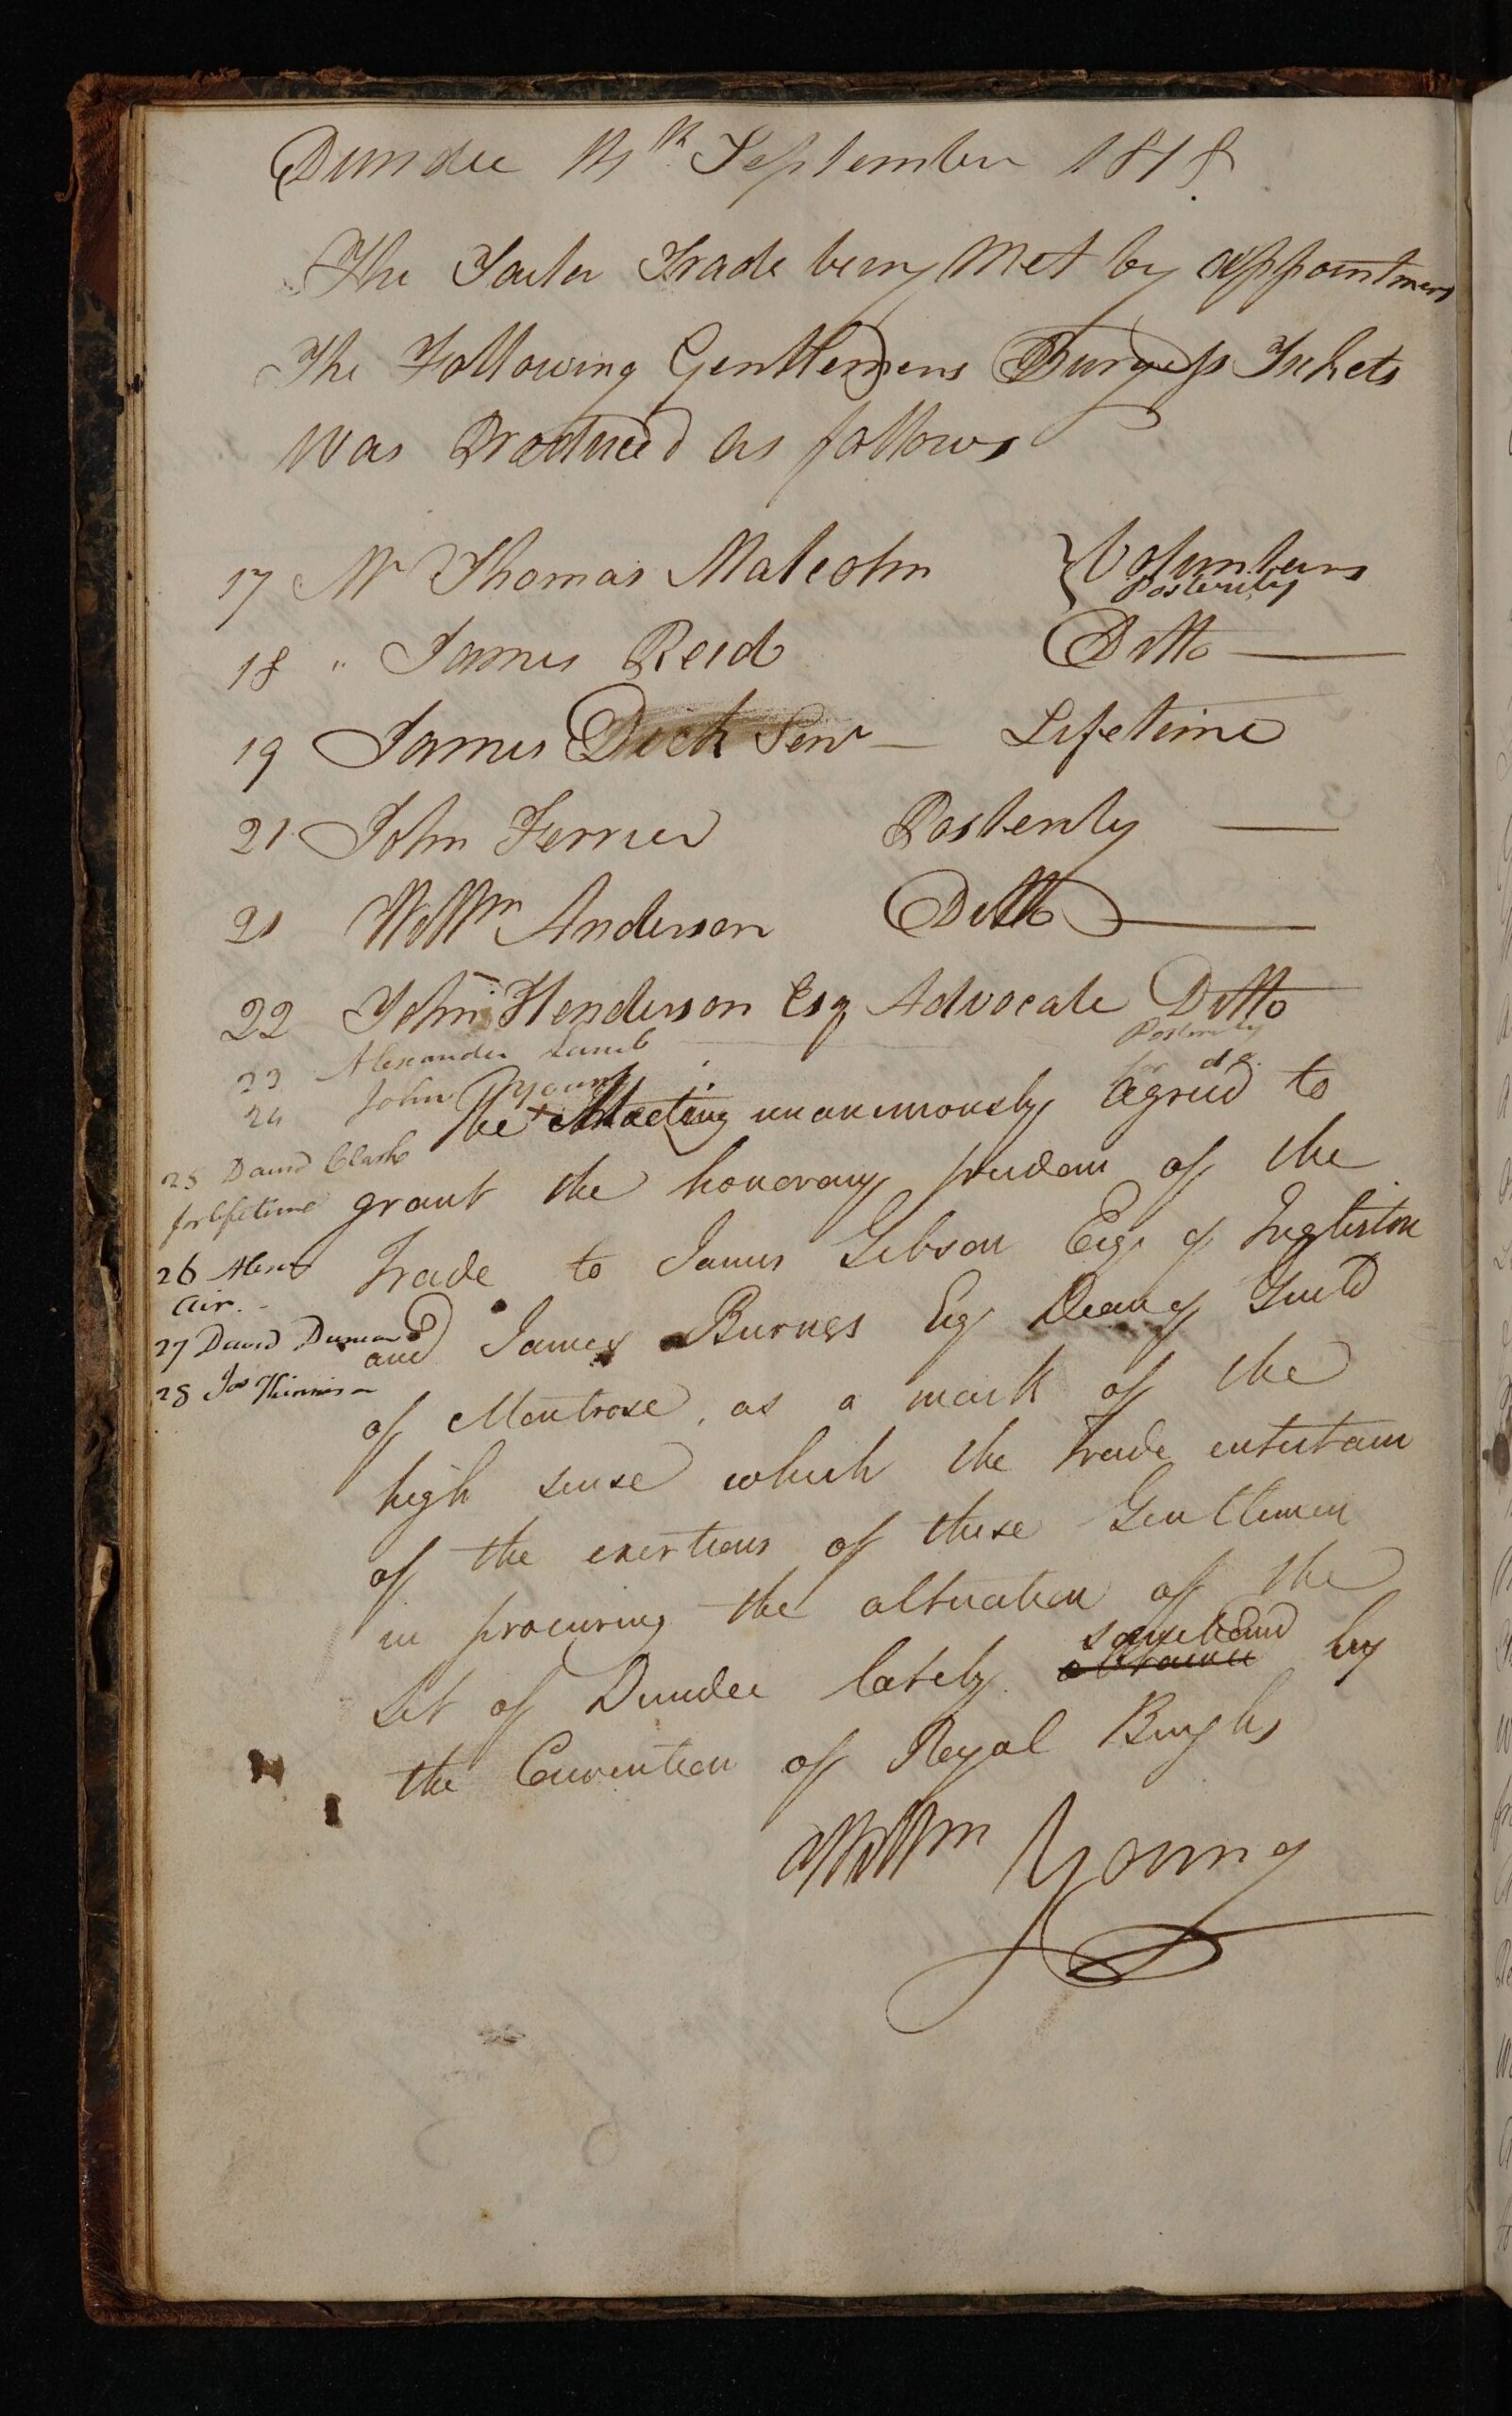 Dundee 14th September 1818
The Tailer Trade being Met by appointment
The Following Gentlemens Burgess Tickets
was Produced as follows
17 Mr Thomas Malcolm } Volunteers Posterity
18 " James Reid Ditto
19 James Dick Senr Lifetime
21 John Ferrier Posterity
21 Willm Anderson Ditto
22 John Henderson Esq Advocate Ditto
23 Alexander Lamb Posterity
24 John Young for do.
The Meeting unanimously agreed to
25 David Clark
for lifetime
grant the honorary freedom of the
26 Alexr
Air.
Trade to James Gibson Esqr of Ingliston
27 David Duncan
and James Burness Esqr Dean of Guild
28 Jas
of Montrose, as a mark of the
high sense which the Trade entertain
of the exertions of these Gentlemen
in procuring the alteration of the
Set of Dundee lately sanctioned by
the Convention of Royal Burghs
Willm Young